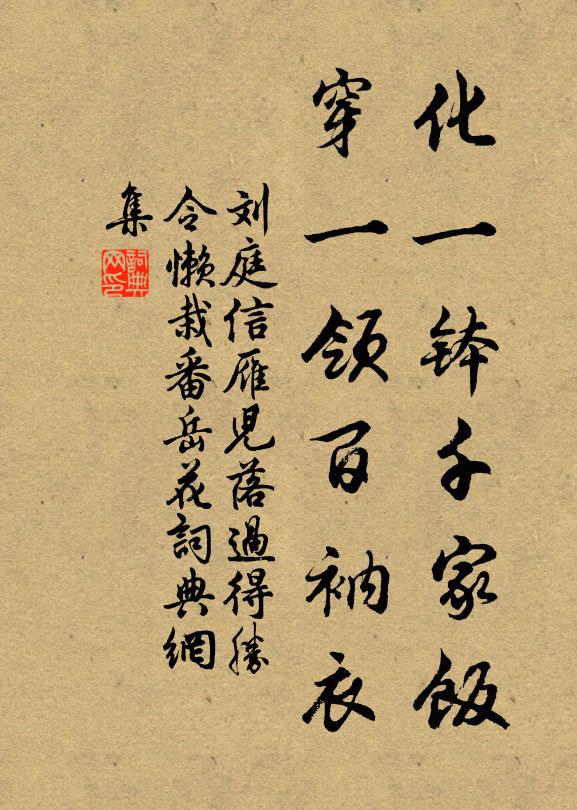 化一钵千家饭
穿一领百衲衣
刘庭信雁儿落過得勝
令懒栽番岳花詞典網
集
詞典
网印